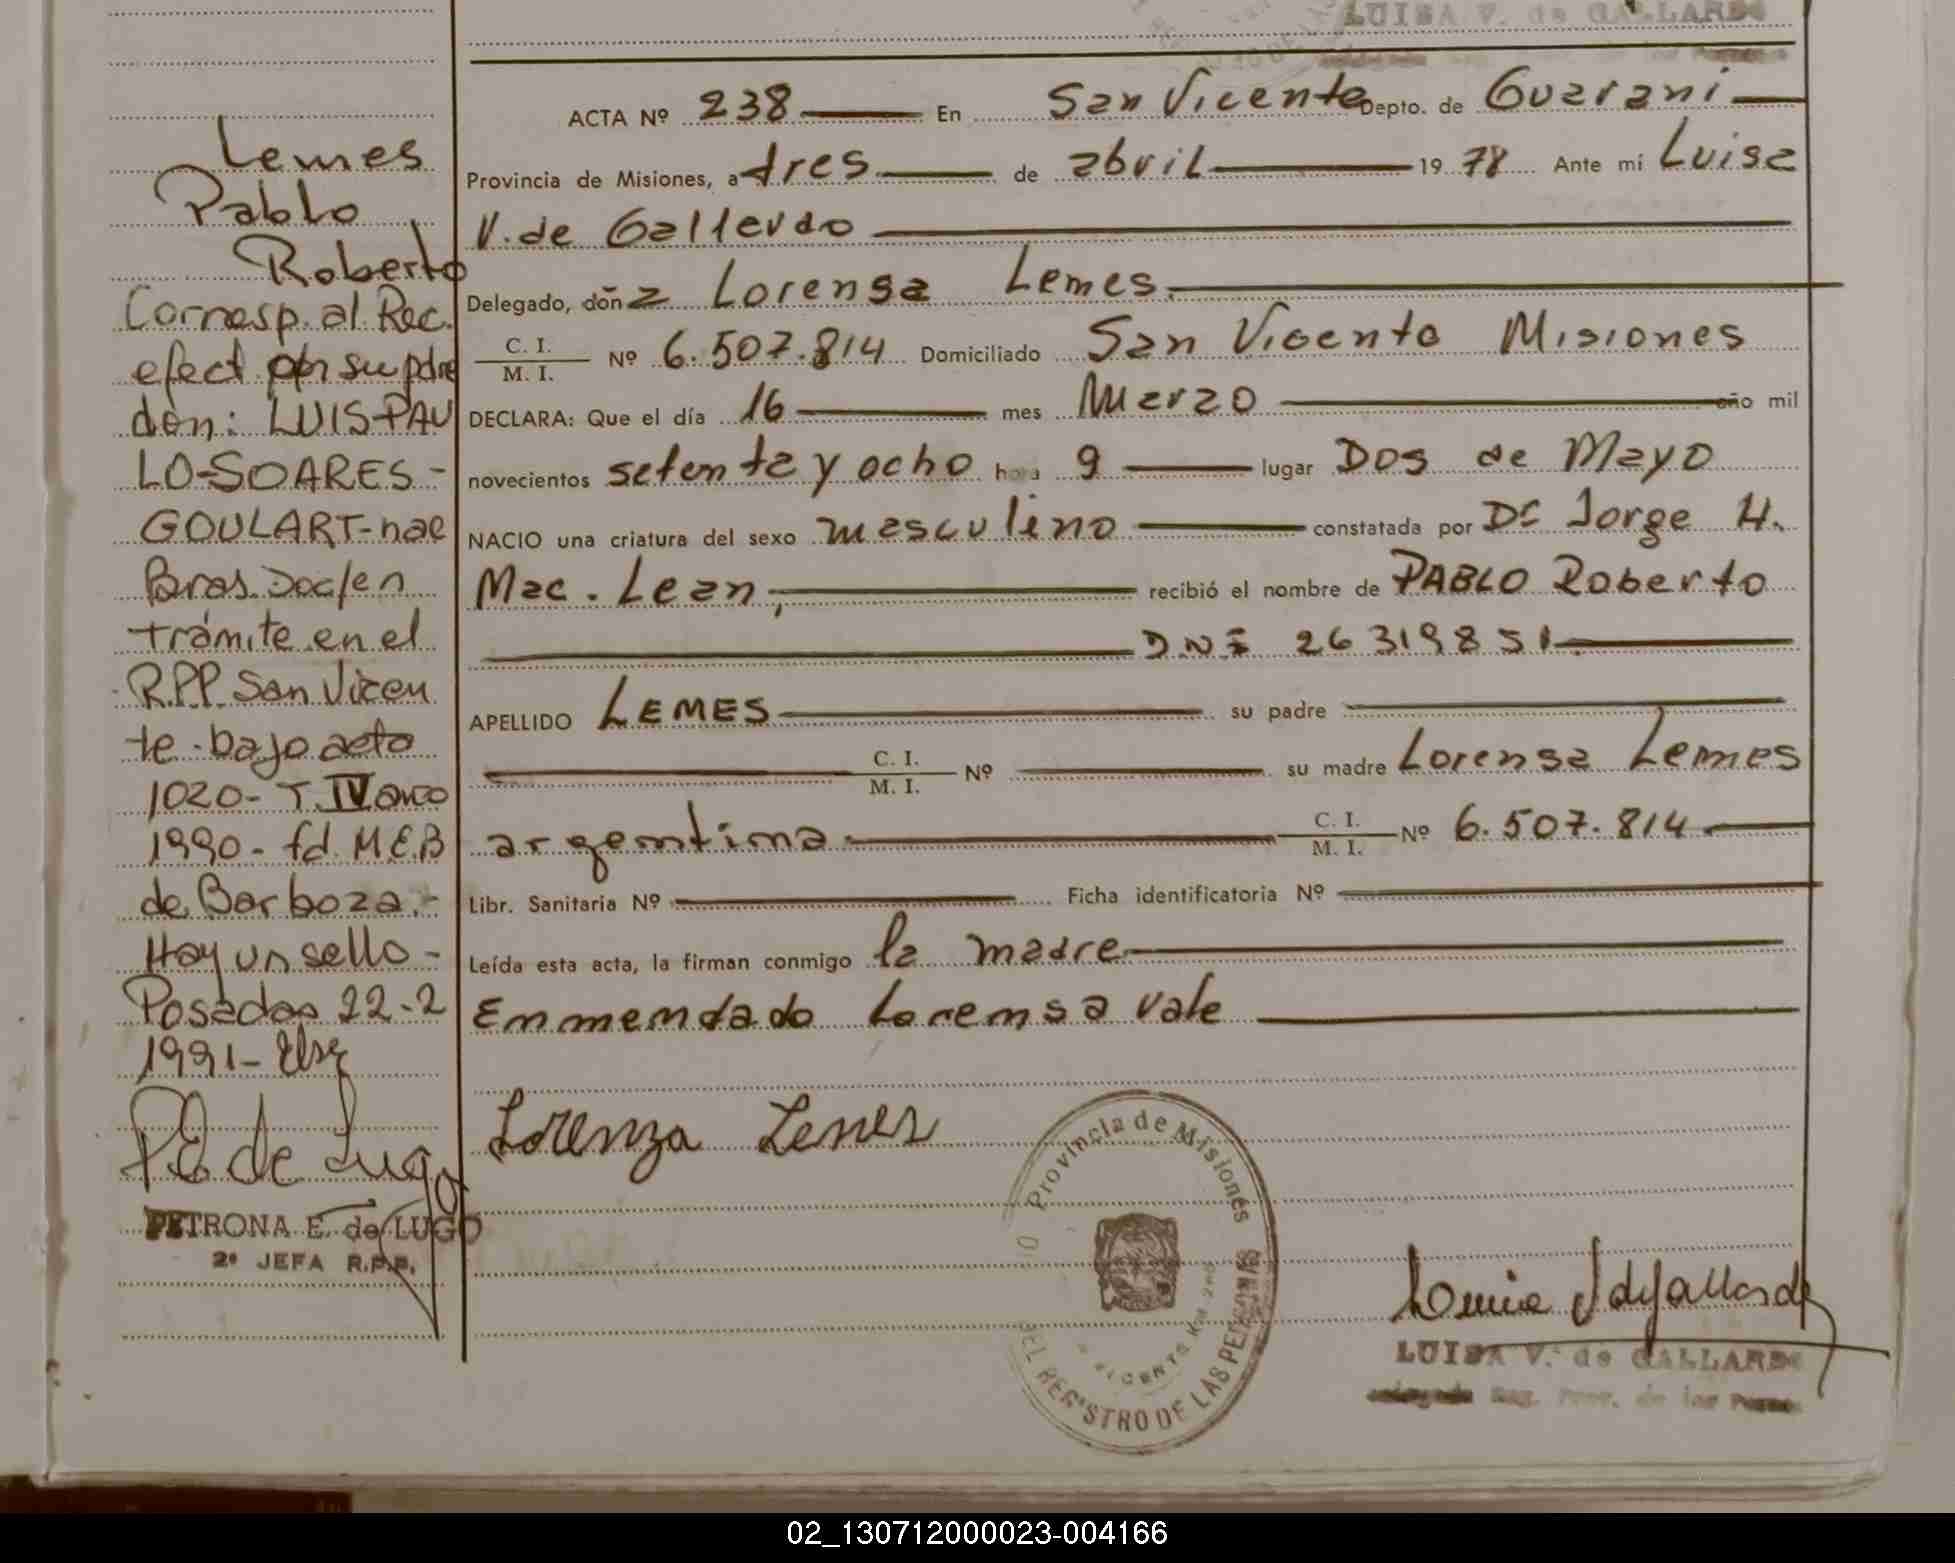 LUISA V. de GALLARDO
Lemes
Pablo
Roberto
Corresp. al Rec.
efect por su pdre
don: LUIS PAU
LO-SOARES-
GOULART-nac
Bras. Doc/en
trámite en el
R.P.P. San Vicen
te-bajo acta
1020- T. IV año
1990- fd. M.E.B
de Barboza.-
Hay un sello-
Posadas 22-2
1991-
P.E. de Lugo
PETRONA E. de LUGO
2º JEFA R.P.P.
ACTA Nº 238 En San Vicente Depto. de Guarani
Provincia de Misiones, a tres de abril 19 78 Ante mí Luisa
V. de Gallardo
Delegado, doña Lorensa Lemes.
C. I. / M. I. Nº 6.507.814 Domiciliado San Vicente Misiones
DECLARA: Que el día 16 mes Marzo año mil
novecientos setenta y ocho hora 9 lugar Dos de Mayo
NACIO una criatura del sexo masculino constatada por Dr Jorge H.
Mac. Lean, recibió el nombre de PABLO Roberto
D.N.I 26319851
APELLIDO LEMES su padre
C. I. / M. I. Nº su madre Lorensa Lemes
argentina C. I. / M. I. Nº 6.507.814
Libr. Sanitaria Nº Ficha identificatoria Nº
Leída esta acta, la firman conmigo la madre
Emmendado Lorensa vale
Lorenza Lemes
Provincia de Misiones
DEL REGISTRO DE LAS PERSONAS
LUISA V. de GALLARDO
Reg. Prov. de las Person.
02_130712000023-004166